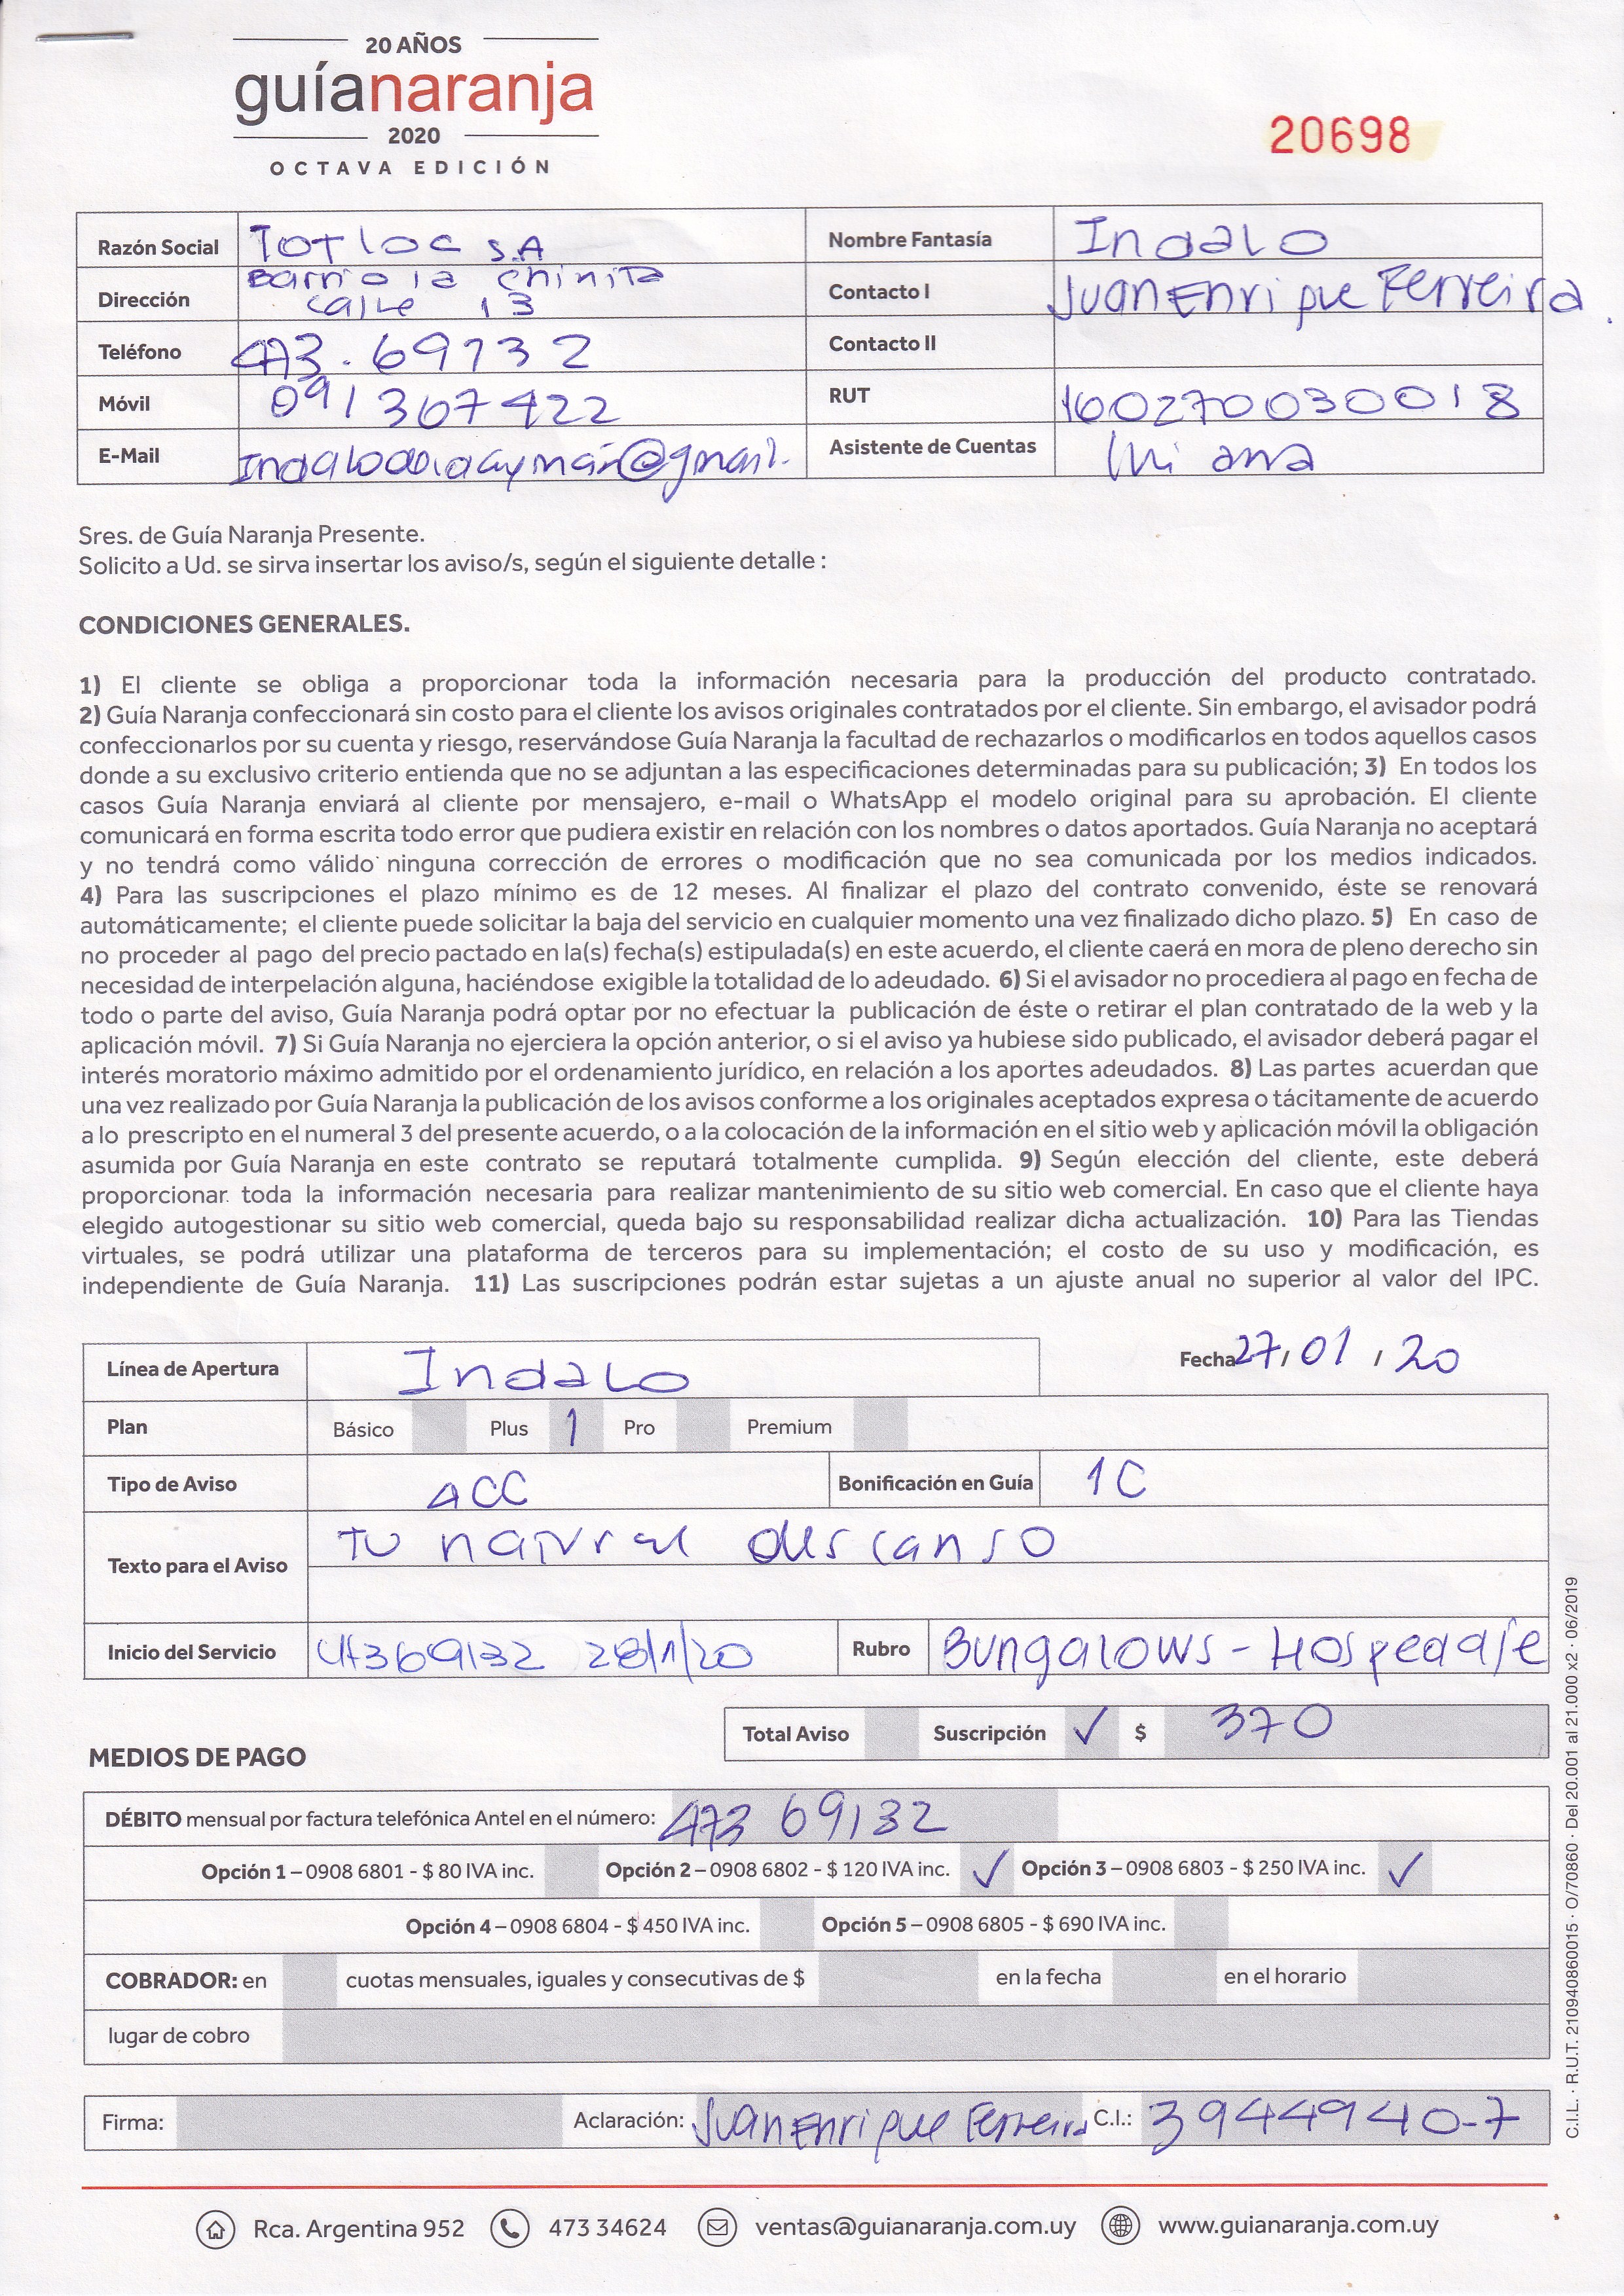 20 AÑOS
guíanaranja
2020
OCTAVA EDICIÓN
20698
Razón Social TOTLOC S.A Nombre Fantasía Indalo
Dirección Barrio la chinita calle 13 Contacto I Juan Enrique Ferreira
Teléfono 473.69732 Contacto II
Móvil 091307422 RUT 160270030018
E-Mail @gmail. Asistente de Cuentas
Sres. de Guía Naranja Presente.
Solicito a Ud. se sirva insertar los aviso/s, según el siguiente detalle :
CONDICIONES GENERALES.
1) El cliente se obliga a proporcionar toda la información necesaria para la producción del producto contratado.
2) Guía Naranja confeccionará sin costo para el cliente los avisos originales contratados por el cliente. Sin embargo, el avisador podrá
confeccionarlos por su cuenta y riesgo, reservándose Guía Naranja la facultad de rechazarlos o modificarlos en todos aquellos casos
donde a su exclusivo criterio entienda que no se adjuntan a las especificaciones determinadas para su publicación; 3) En todos los
casos Guía Naranja enviará al cliente por mensajero, e-mail o WhatsApp el modelo original para su aprobación. El cliente
comunicará en forma escrita todo error que pudiera existir en relación con los nombres o datos aportados. Guía Naranja no aceptará
y no tendrá como válido ninguna corrección de errores o modificación que no sea comunicada por los medios indicados.
4) Para las suscripciones el plazo mínimo es de 12 meses. Al finalizar el plazo del contrato convenido, éste se renovará
automáticamente; el cliente puede solicitar la baja del servicio en cualquier momento una vez finalizado dicho plazo. 5) En caso de
no proceder al pago del precio pactado en la(s) fecha(s) estipulada(s) en este acuerdo, el cliente caerá en mora de pleno derecho sin
necesidad de interpelación alguna, haciéndose exigible la totalidad de lo adeudado. 6) Si el avisador no procediera al pago en fecha de
todo o parte del aviso, Guía Naranja podrá optar por no efectuar la publicación de éste o retirar el plan contratado de la web y la
aplicación móvil. 7) Si Guía Naranja no ejerciera la opción anterior, o si el aviso ya hubiese sido publicado, el avisador deberá pagar el
interés moratorio máximo admitido por el ordenamiento jurídico, en relación a los aportes adeudados. 8) Las partes acuerdan que
una vez realizado por Guía Naranja la publicación de los avisos conforme a los originales aceptados expresa o tácitamente de acuerdo
a lo prescripto en el numeral 3 del presente acuerdo, o a la colocación de la información en el sitio web y aplicación móvil la obligación
asumida por Guía Naranja en este contrato se reputará totalmente cumplida. 9) Según elección del cliente, este deberá
proporcionar toda la información necesaria para realizar mantenimiento de su sitio web comercial. En caso que el cliente haya
elegido autogestionar su sitio web comercial, queda bajo su responsabilidad realizar dicha actualización. 10) Para las Tiendas
virtuales, se podrá utilizar una plataforma de terceros para su implementación; el costo de su uso y modificación, es
independiente de Guía Naranja. 11) Las suscripciones podrán estar sujetas a un ajuste anual no superior al valor del IPC.
Línea de Apertura Indalo Fecha 27/01/20
Plan Básico Plus 1 Pro Premium
Tipo de Aviso ACC Bonificación en Guía 1C
Texto para el Aviso Tu natural descanso
Inicio del Servicio 47369132 28/1/20 Rubro Bungalows - Hospedaje
Total Aviso Suscripción ✓ $ 370
MEDIOS DE PAGO
DÉBITO mensual por factura telefónica Antel en el número: 473 69132
Opción 1 – 0908 6801 - $ 80 IVA inc. Opción 2 – 0908 6802 - $ 120 IVA inc. ✓ Opción 3 – 0908 6803 - $ 250 IVA inc. ✓
Opción 4 – 0908 6804 - $ 450 IVA inc. Opción 5 – 0908 6805 - $ 690 IVA inc.
COBRADOR: en cuotas mensuales, iguales y consecutivas de $ en la fecha en el horario
lugar de cobro
Firma: Aclaración: Juan Enrique Ferreira C.I.: 3944940-7
Rca. Argentina 952 473 34624 ventas@guianaranja.com.uy www.guianaranja.com.uy
C.I.L. · R.U.T. 210940860015 · O/70860 · Del 20.001 al 21.000 x2 · 06/2019